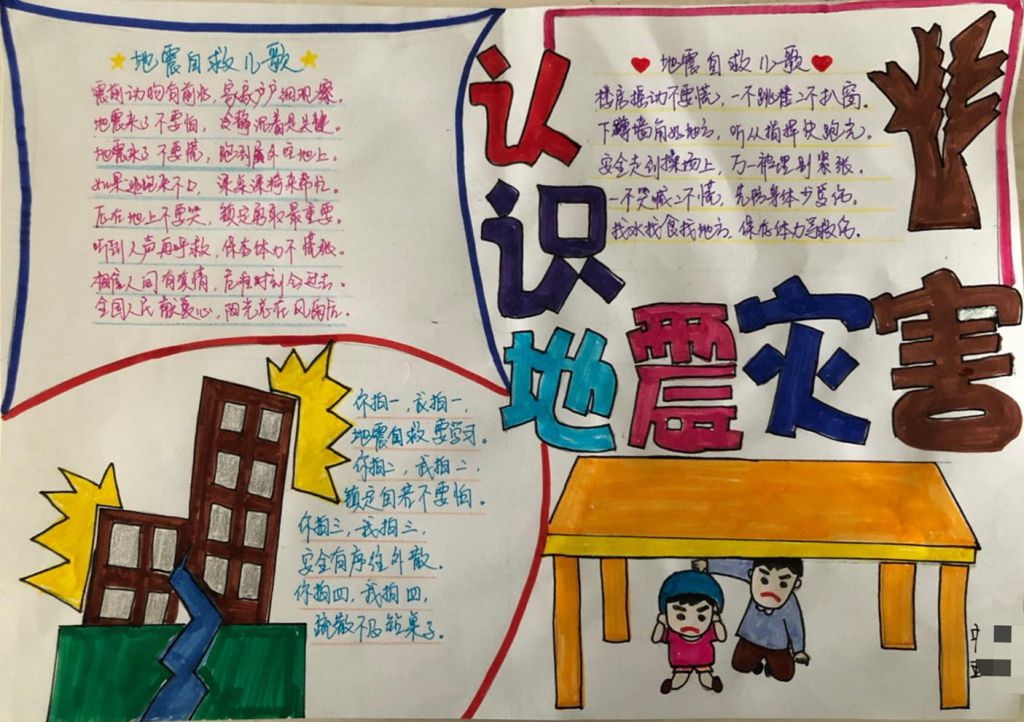 地震自救儿歌
震前动物有前兆，家家户户细观察。
地震来了不要怕，冷静沉着是关键。
地震来了不要慌，跑到屋外空地上。
如果逃跑来不及，课桌课椅来帮忙。
压在地上不要哭，镇定自救最重要。
听到人声再呼救，保存体力不慌张。
相信人间有真情，危难时刻会过去。
全国人民献爱心，阳光总在风雨后。
认识地震灾害
地震自救儿歌
楼房摇动不要慌，一不跳楼二不扒窗。
下蹲墙角好地方，听从指挥快跑完。
安全走到操场上，万一被埋别紧张。
一不哭喊二不慌，先防身体少受伤。
找水找食找地方，保存体力等救伤。
你拍一，我拍一，
地震自救要学习。
你拍二，我拍二，
镇定自若不要怕。
你拍三，我拍三，
安全有序往外散。
你拍四，我拍四，
疏散不及钻桌子。